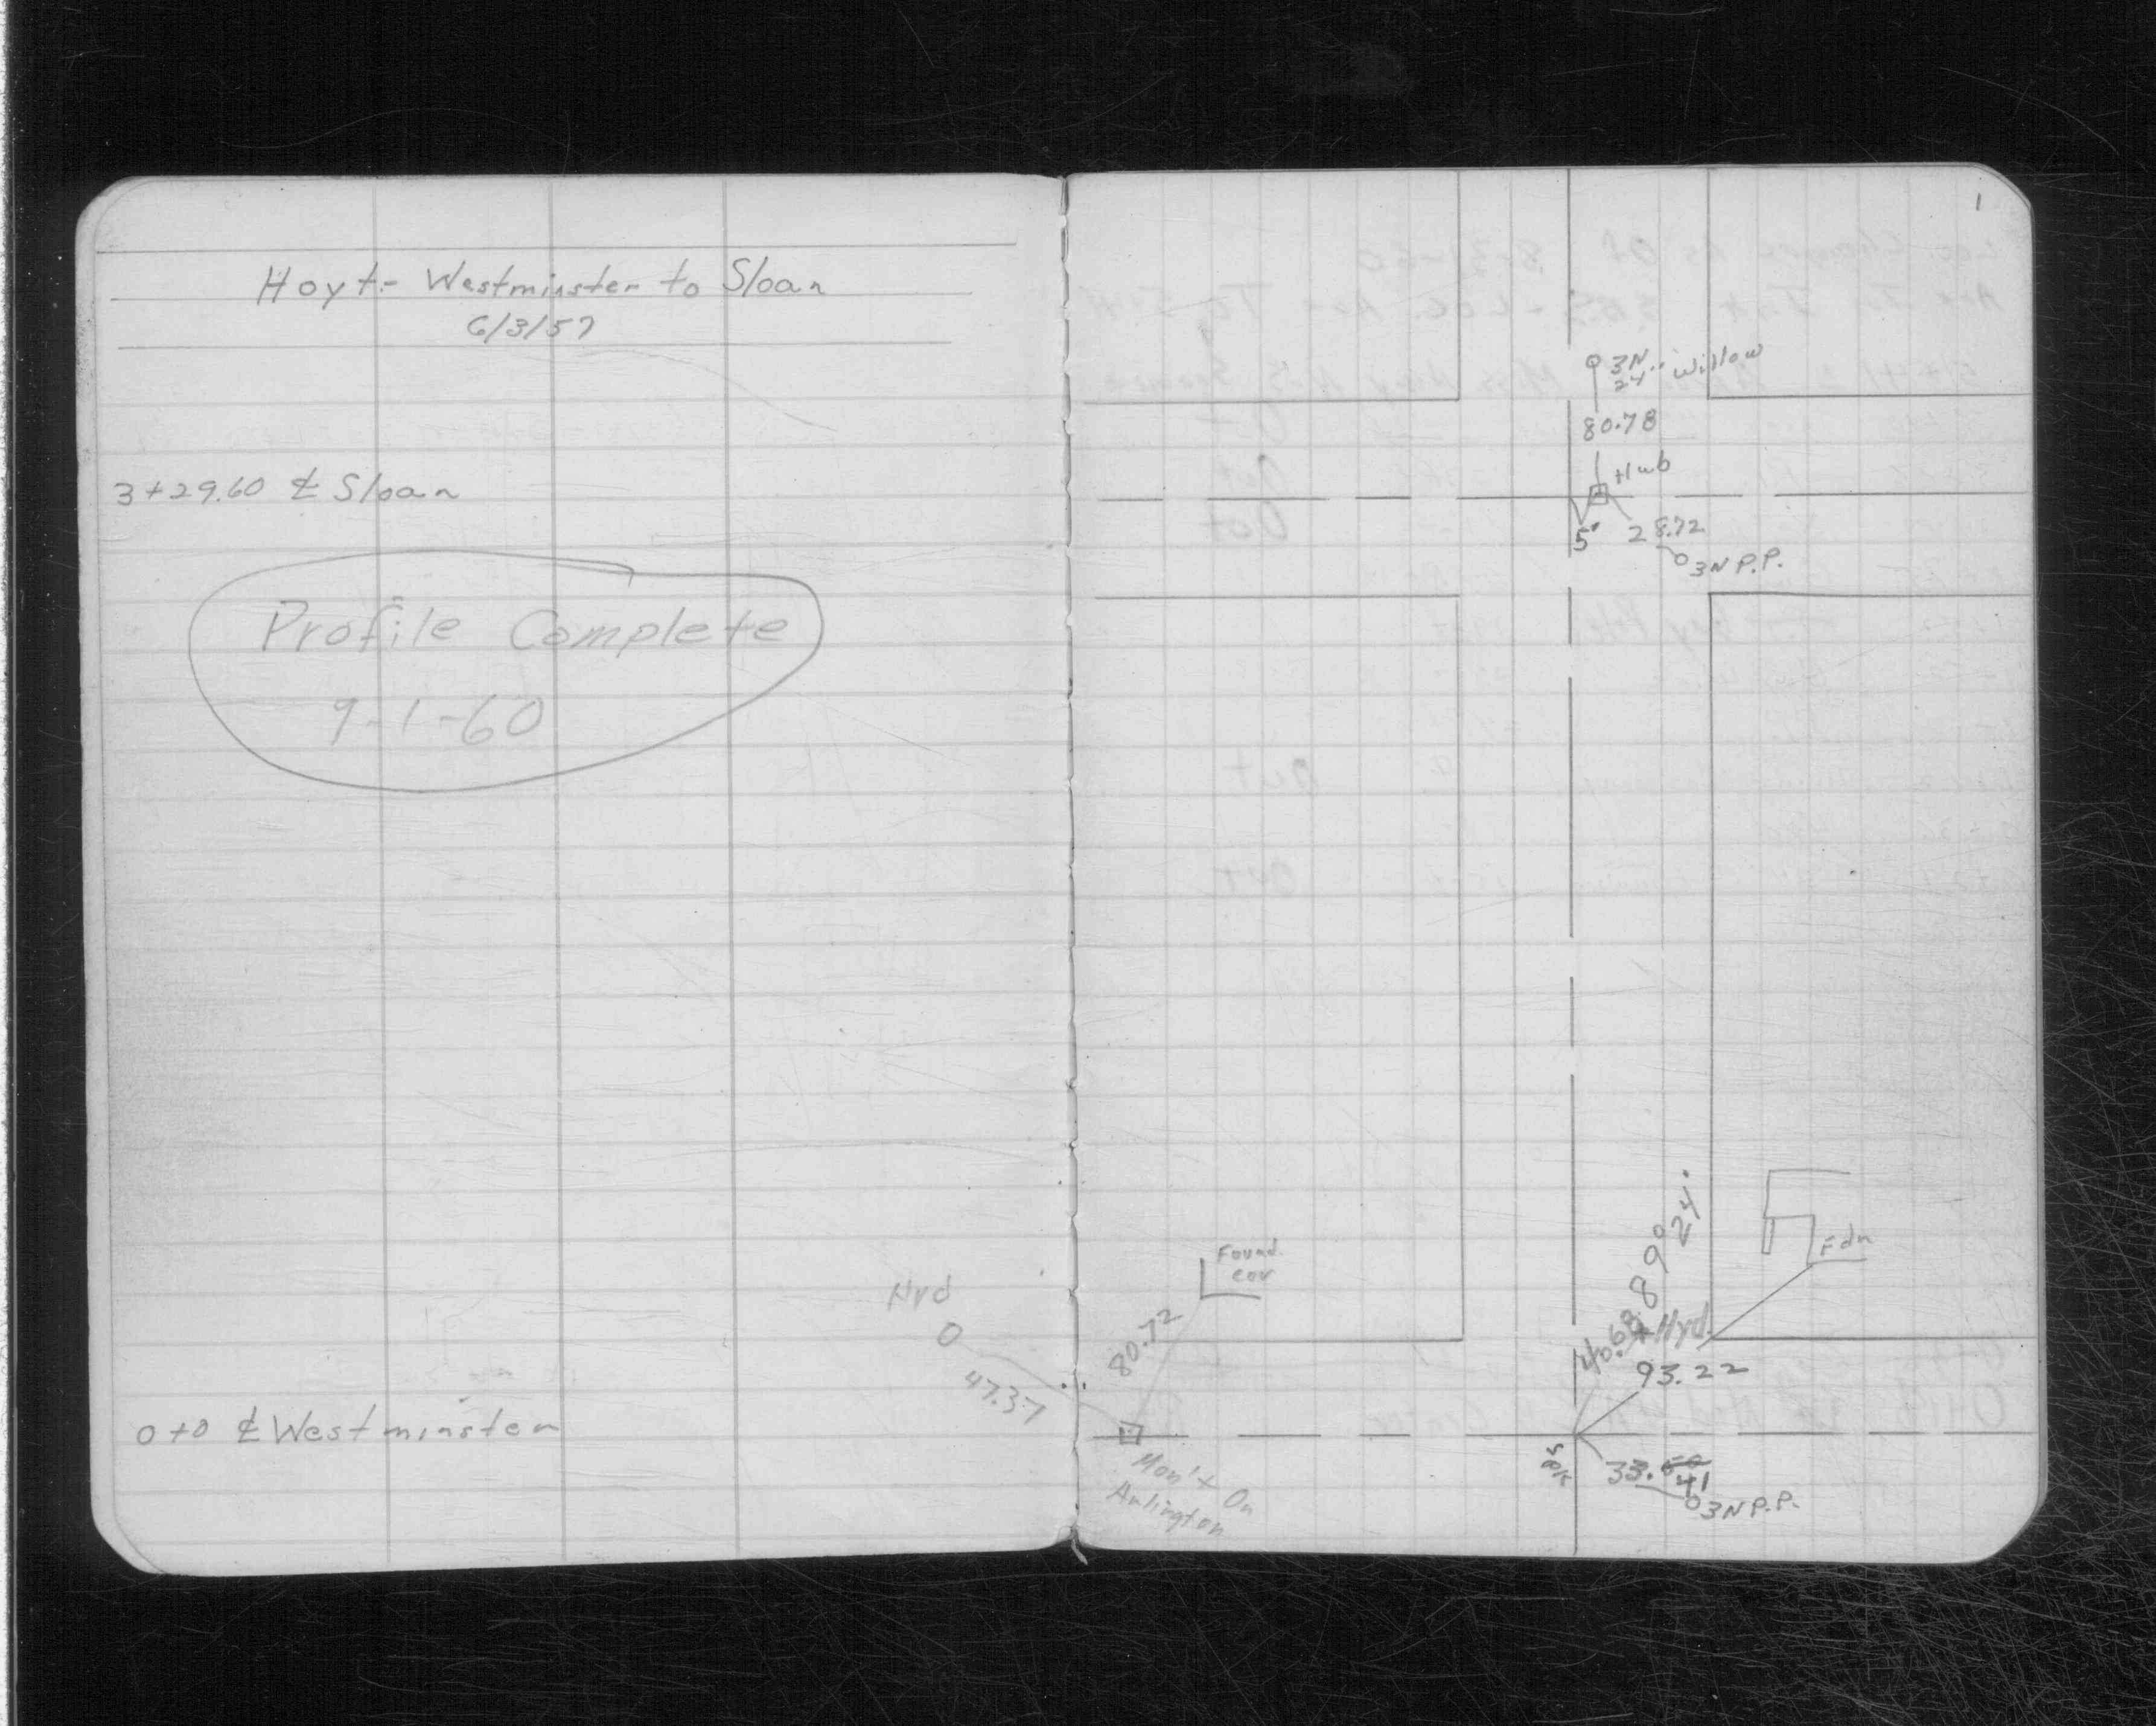 Hoyt - Westminster to Sloan
6/3/57
3+29.60 ℄ Sloan
Profile Complete
9-1-60
Hyd
47.37
0+0 ℄ Westminster
1
3N
24" Willow
80.78
Hub
5'
28.72
3N P.P.
Found
cor
80.72
Mon't On
Arlington
89° 24'
Fdn
40.68
Hyd.
93.22
33.41
3N P.P.